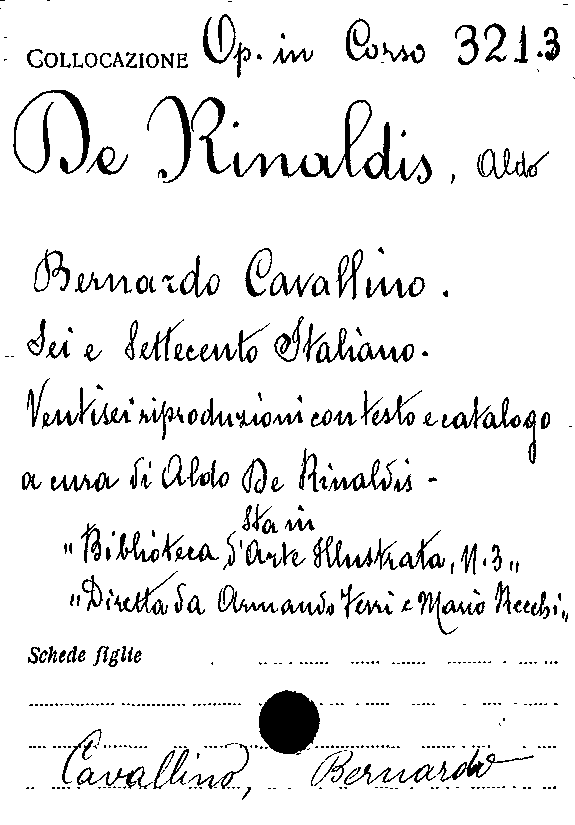 COLLOCAZIONE Op. in Corso 321.3
De Rinaldis, Aldo
Bernardo Cavallino.
Sei e Settecento Italiano.
Ventisei riproduzioni con testo e catalogo
a cura di Aldo De Rinaldis -
Sta in
"Biblioteca d'Arte Illustrata, N.3"
"Diretta da Armando Ferri e Mario Recchi"
Schede figlie
Cavallino, Bernardo